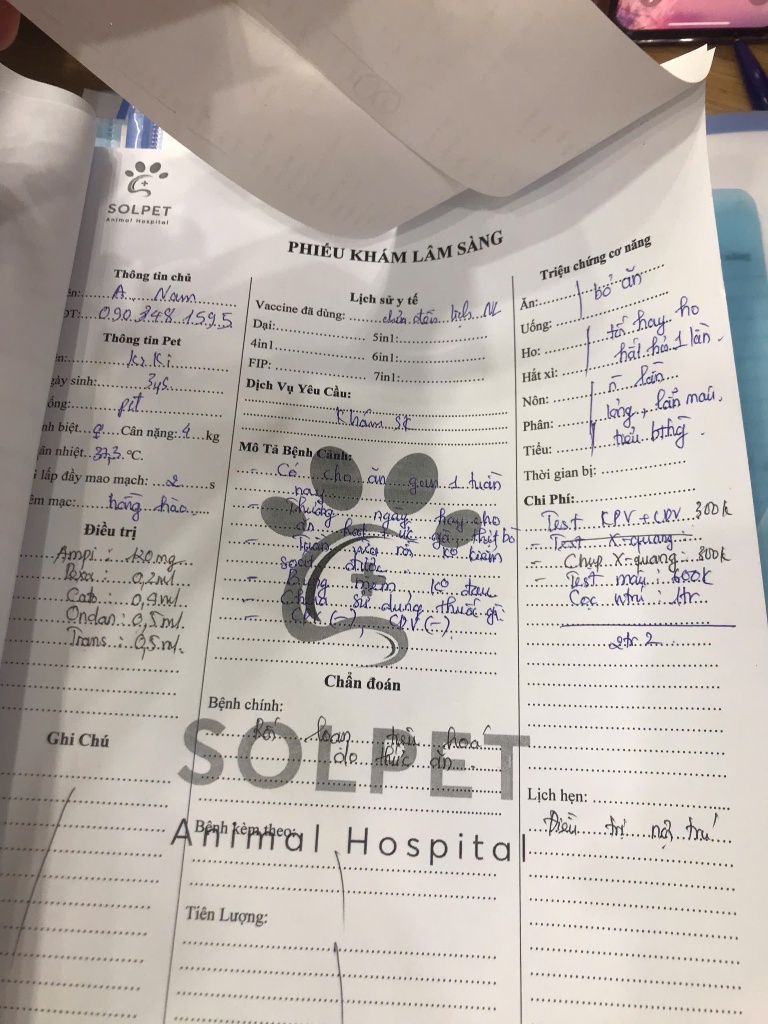 SOLPET
Animal Hospital
PHIẾU KHÁM LÂM SÀNG
Thông tin chủ
A. Nam
090 348 1595
Thông tin Pet
Ki Ki
ngày sinh:
pít
Cân nặng: 4 kg
37,3 °C.
lấp đầy mao mạch: 2 s
êm mạc: hồng hào
Điều trị
Ampi: 120 mg
0,2ml
Cat: 0,4ml
Ondan: 0,5ml
Trans: 0,5ml.
Ghi Chú
Lịch sử y tế
Vaccine đã dùng:
Dại: 5in1:
4in1 6in1:
FIP: 7in1:
Dịch Vụ Yêu Cầu:
Khám SK
Mô Tả Bệnh Cảnh:
- Có cho ăn gan 1 tuần
nay
- Thường ngày hay cho
ăn hạt + ức gà, thịt bò
- Tuần nôn ko kiểm
soát được
- Bụng mềm, ko đau
- Chưa sử dụng thuốc gì
- CPV (-)
Chẩn đoán
Bệnh chính:
Rối loạn tiêu hoá
do thức ăn
SOLPET
Bệnh kèm theo:
Animal Hospital
Tiên Lượng:
Triệu chứng cơ năng
Ăn: bỏ ăn
Uống:
Ho: tối hay ho
Hắt xì: hắt hơi 1 lần.
Nôn: n lần
Phân: lỏng, lẫn máu.
Tiểu: tiểu bthg
Thời gian bị:
Chi Phí:
Test CPV + CDV 300k
- Test X-quang
- Chụp X-quang 300k
- Test máy 600k
Cọc ntrú: 1tr
2tr2
Lịch hẹn:
Điều trị nội trú